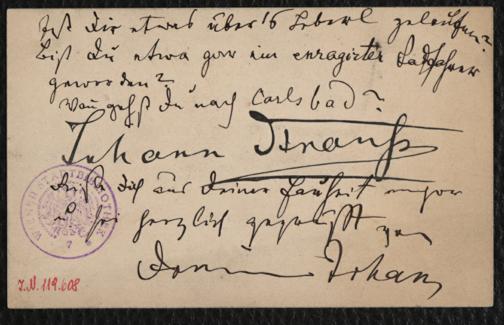 Ist Dir etwas über's Leberl gelaufen?
Bist Du etwa gar ein enragirter Radfahrer
geworden?
Wann gehst Du nach Carlsbad?
Johann Strauss
Dich aus Deiner Faulheit empor
u sei
herzlich gegrüsst von
Deinem Johann
WIENER STADTBIBLIOTHEK
J.N. 119.608